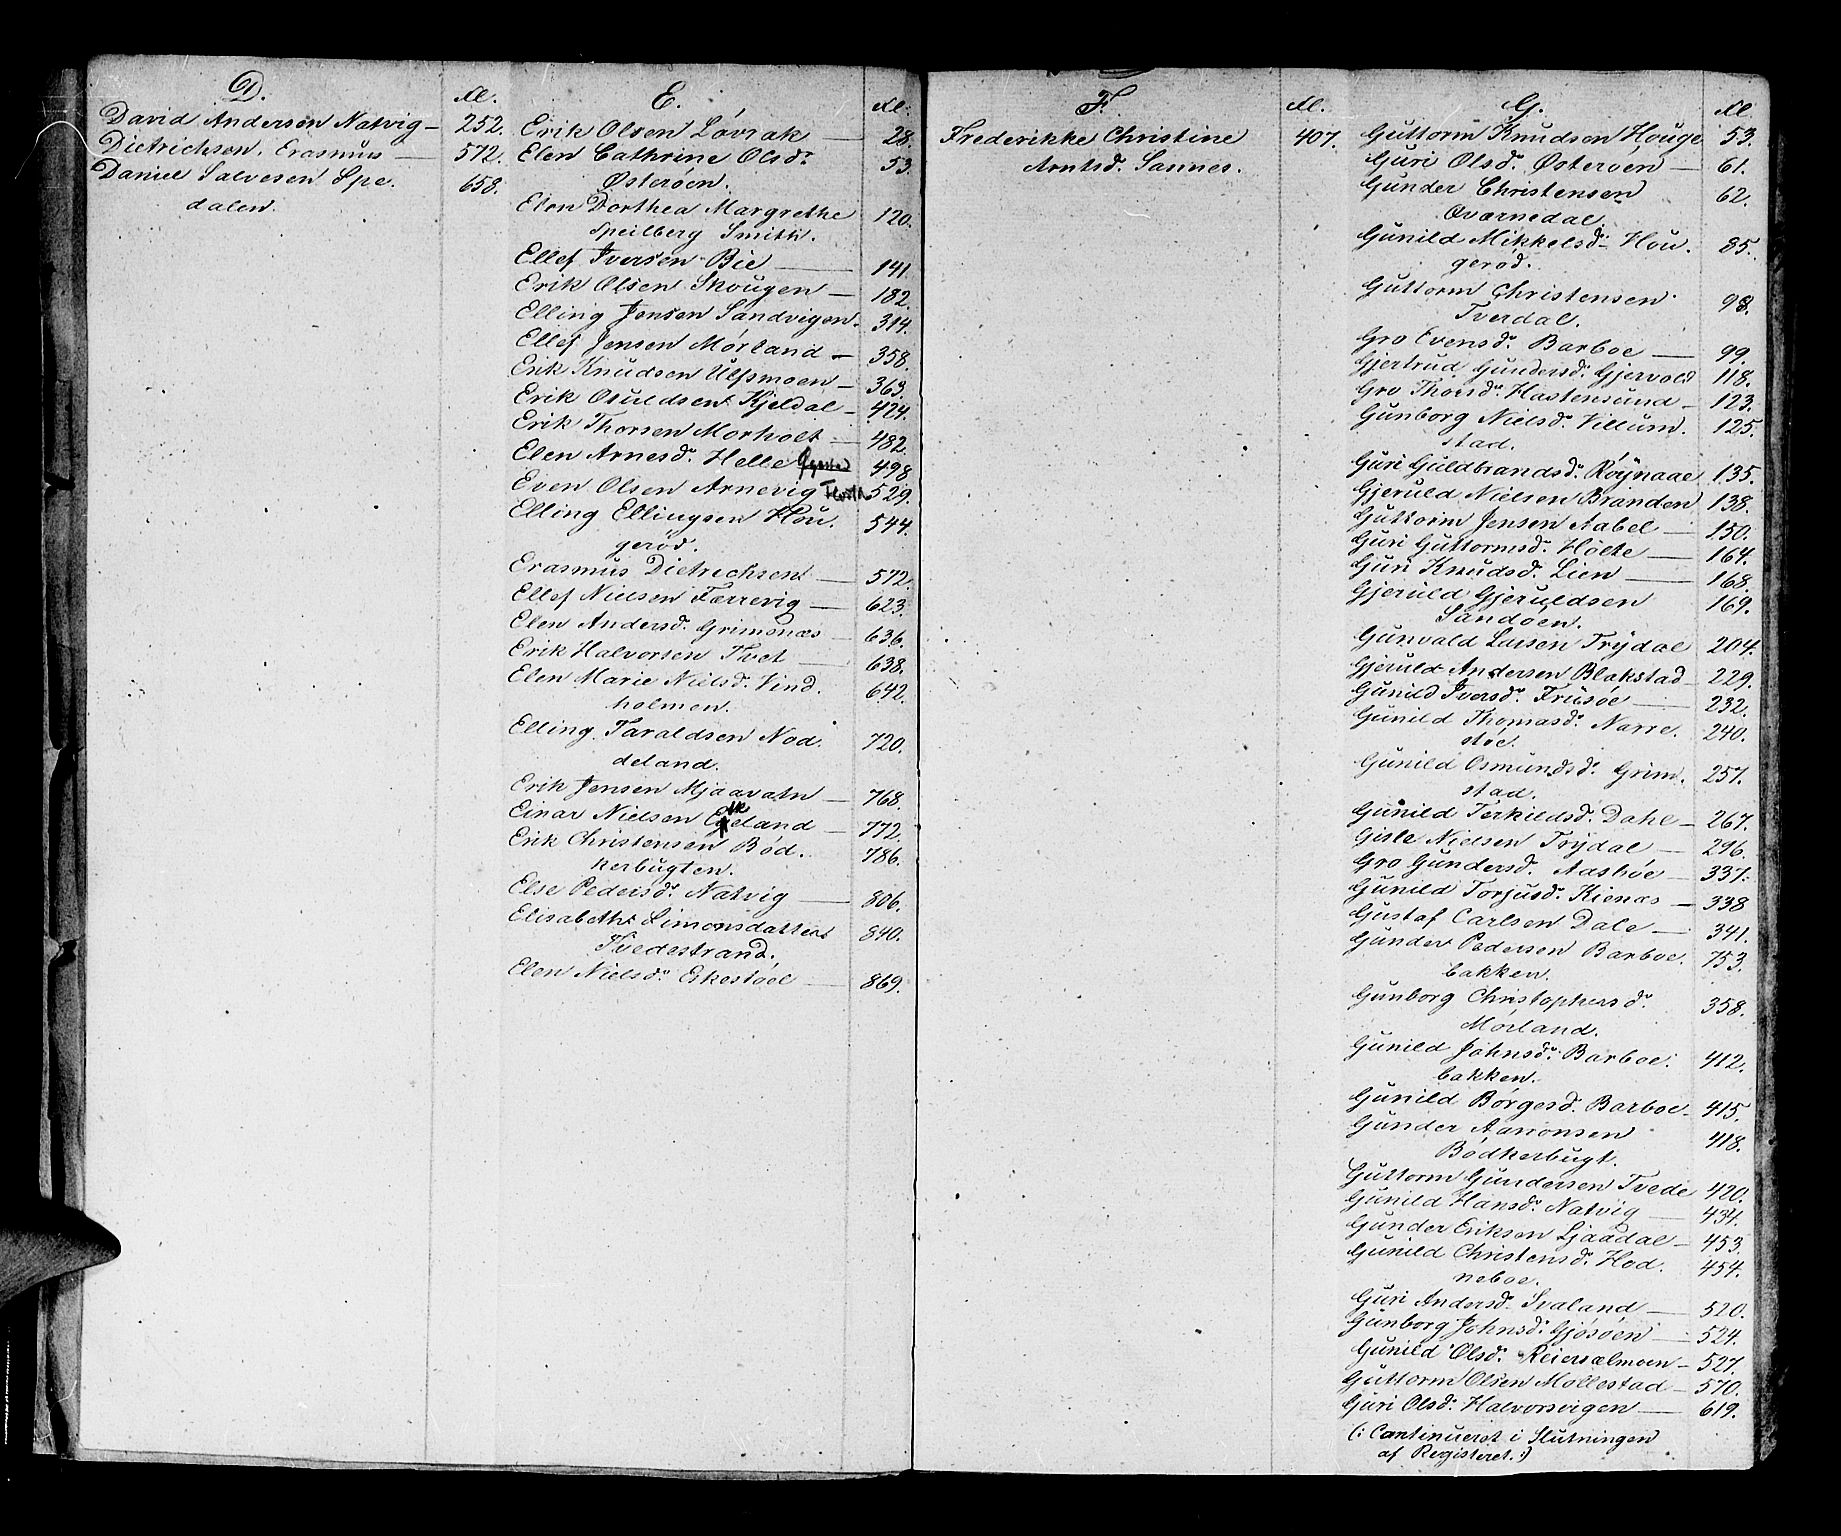 D.
David Andersen Natvig — 252.
Dietrichson, Erasmus — 572.
Daniel Salvesen Spe. 658.
dalen.
E.
Erik Olsen Løvrak — 28.
Elen Cathrine Olsd. 53.
Østerøen.
Elen Dorthea Margrethe 120.
Speilberg Smith.
Ellef Iversen Bie — 141.
Erik Olsen Skougen — 182.
Elling Jensen Sandvigen. 314.
Ellef Jensen Morland — 358.
Erik Knudsen Ulfsmoen — 363.
Erik Osuldsen Kjeldal — 424.
Erik Thorsen Morholt — 482.
Elen Arnesd. Helle 498
Even Olsen Arnevig 529.
Elling Ellingsen Hou. 544.
gerød.
Erasmus Dietrichsen — 572.
Ellef Nielsen Færrevig — 623.
Elen Andersd. Grimsnæs — 636.
Erik Halvorsen Tvet — 638.
Elen Marie Nielsd. Vind. 642.
holmen.
Elling Taraldsen Nod. 720.
deland.
Erik Jensen Mjaavatn — 768.
Einar Nielsen — 772.
Erik Christensen Bød. 786.
kerbugten.
Else Pedersd. Natvig — 806.
Elisabeth Simonsdatter 840.
Tvedestrand.
Elen Nielsd. Eikestøel — 869.
F.
Frederikke Christine 407.
Arntsd. Sannes.
G.
Guttorm Knudsen Houge 53.
Guri Olsd. Østerøen — 61.
Gunder Christensen 62.
Qværnedal.
Gunild Mikkelsd. Hou. 85.
gerød.
Guttorm Christensen 98.
Tverdal.
Gro Evensd. Barboe — 99.
Gjertrud Gundersd. Gjervold 118.
Gro Thorsd. Hastensund — 123.
Gunborg Nielsd. Villum. 125.
stad.
Guri Guldbrandsd. Røÿnaae 135.
Gjeruld Nielsen Branden 138.
Guttorm Jensen Aabel — 150.
Guri Guttormsd. Holte — 164.
Guri Knudsd. Lien — 168.
Gjeruld Gjeruldsen 169.
Sandøen.
Gunvald Larsen Trÿdal 204.
Gjeruld Andersen Blakstad 229.
Gunild Iversd. Frusøe — 232.
Gunild Thomasd. Narre. 240.
støe.
Gunild Osmundsd. Grim. 257.
stad.
Gunild Terkildsd. Dahl — 267.
Gisle Nielsen Trÿdal — 296.
Gro Gundersd. Aashøe — 337.
Gunild Torjusd. Kienæs — 338
Gustaf Carlsen Dale — 341.
Gunder Pedersen Barboe. 753.
bakken.
Gunborg Christophersd. 358.
Morland.
Gunild Johnsd. Barboe. 412.
bakken.
Gunild Børgesd. Barboe — 415.
Gunder Aanonsen 418.
Bødkerbugt.
Guttorm Gundersen Tvede 420.
Gunild Hansd. Natvig — 434.
Gunder Eriksen Ljaadal — 453.
Gunild Christensd. Hod. 454.
neboe.
Guri Andersd. Svaland — 520.
Gunborg Johnsd. Gjøsøen — 524.
Gunild Olsd. Reiersølmoen — 527.
Guttorm Olsen Mollestad — 570.
Guri Olsd. Halvorsvigen — 619.
(: Continueret i Slutningen
af Registeret. :)